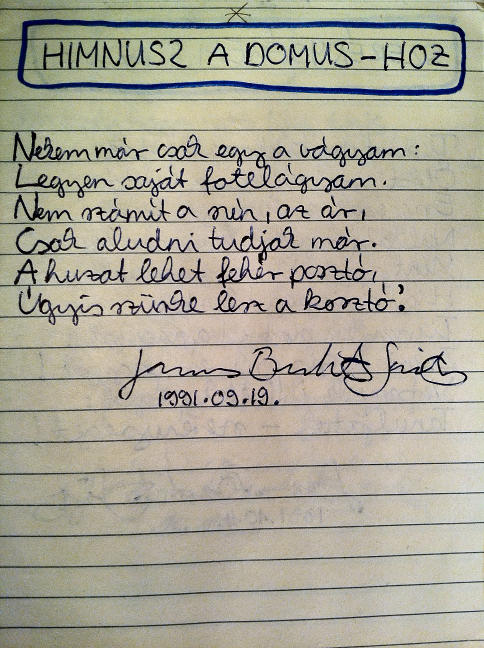 HIMNUSZ A DOMUS-HOZ
Nekem már csak egy a vágyam:
Legyen saját fotelágyam.
Nem számít a szín, az ár,
Csak aludni tudjak már.
A huzat lehet fehér posztó,
Úgyis szürke lesz a kosztó!
1991.09.19.